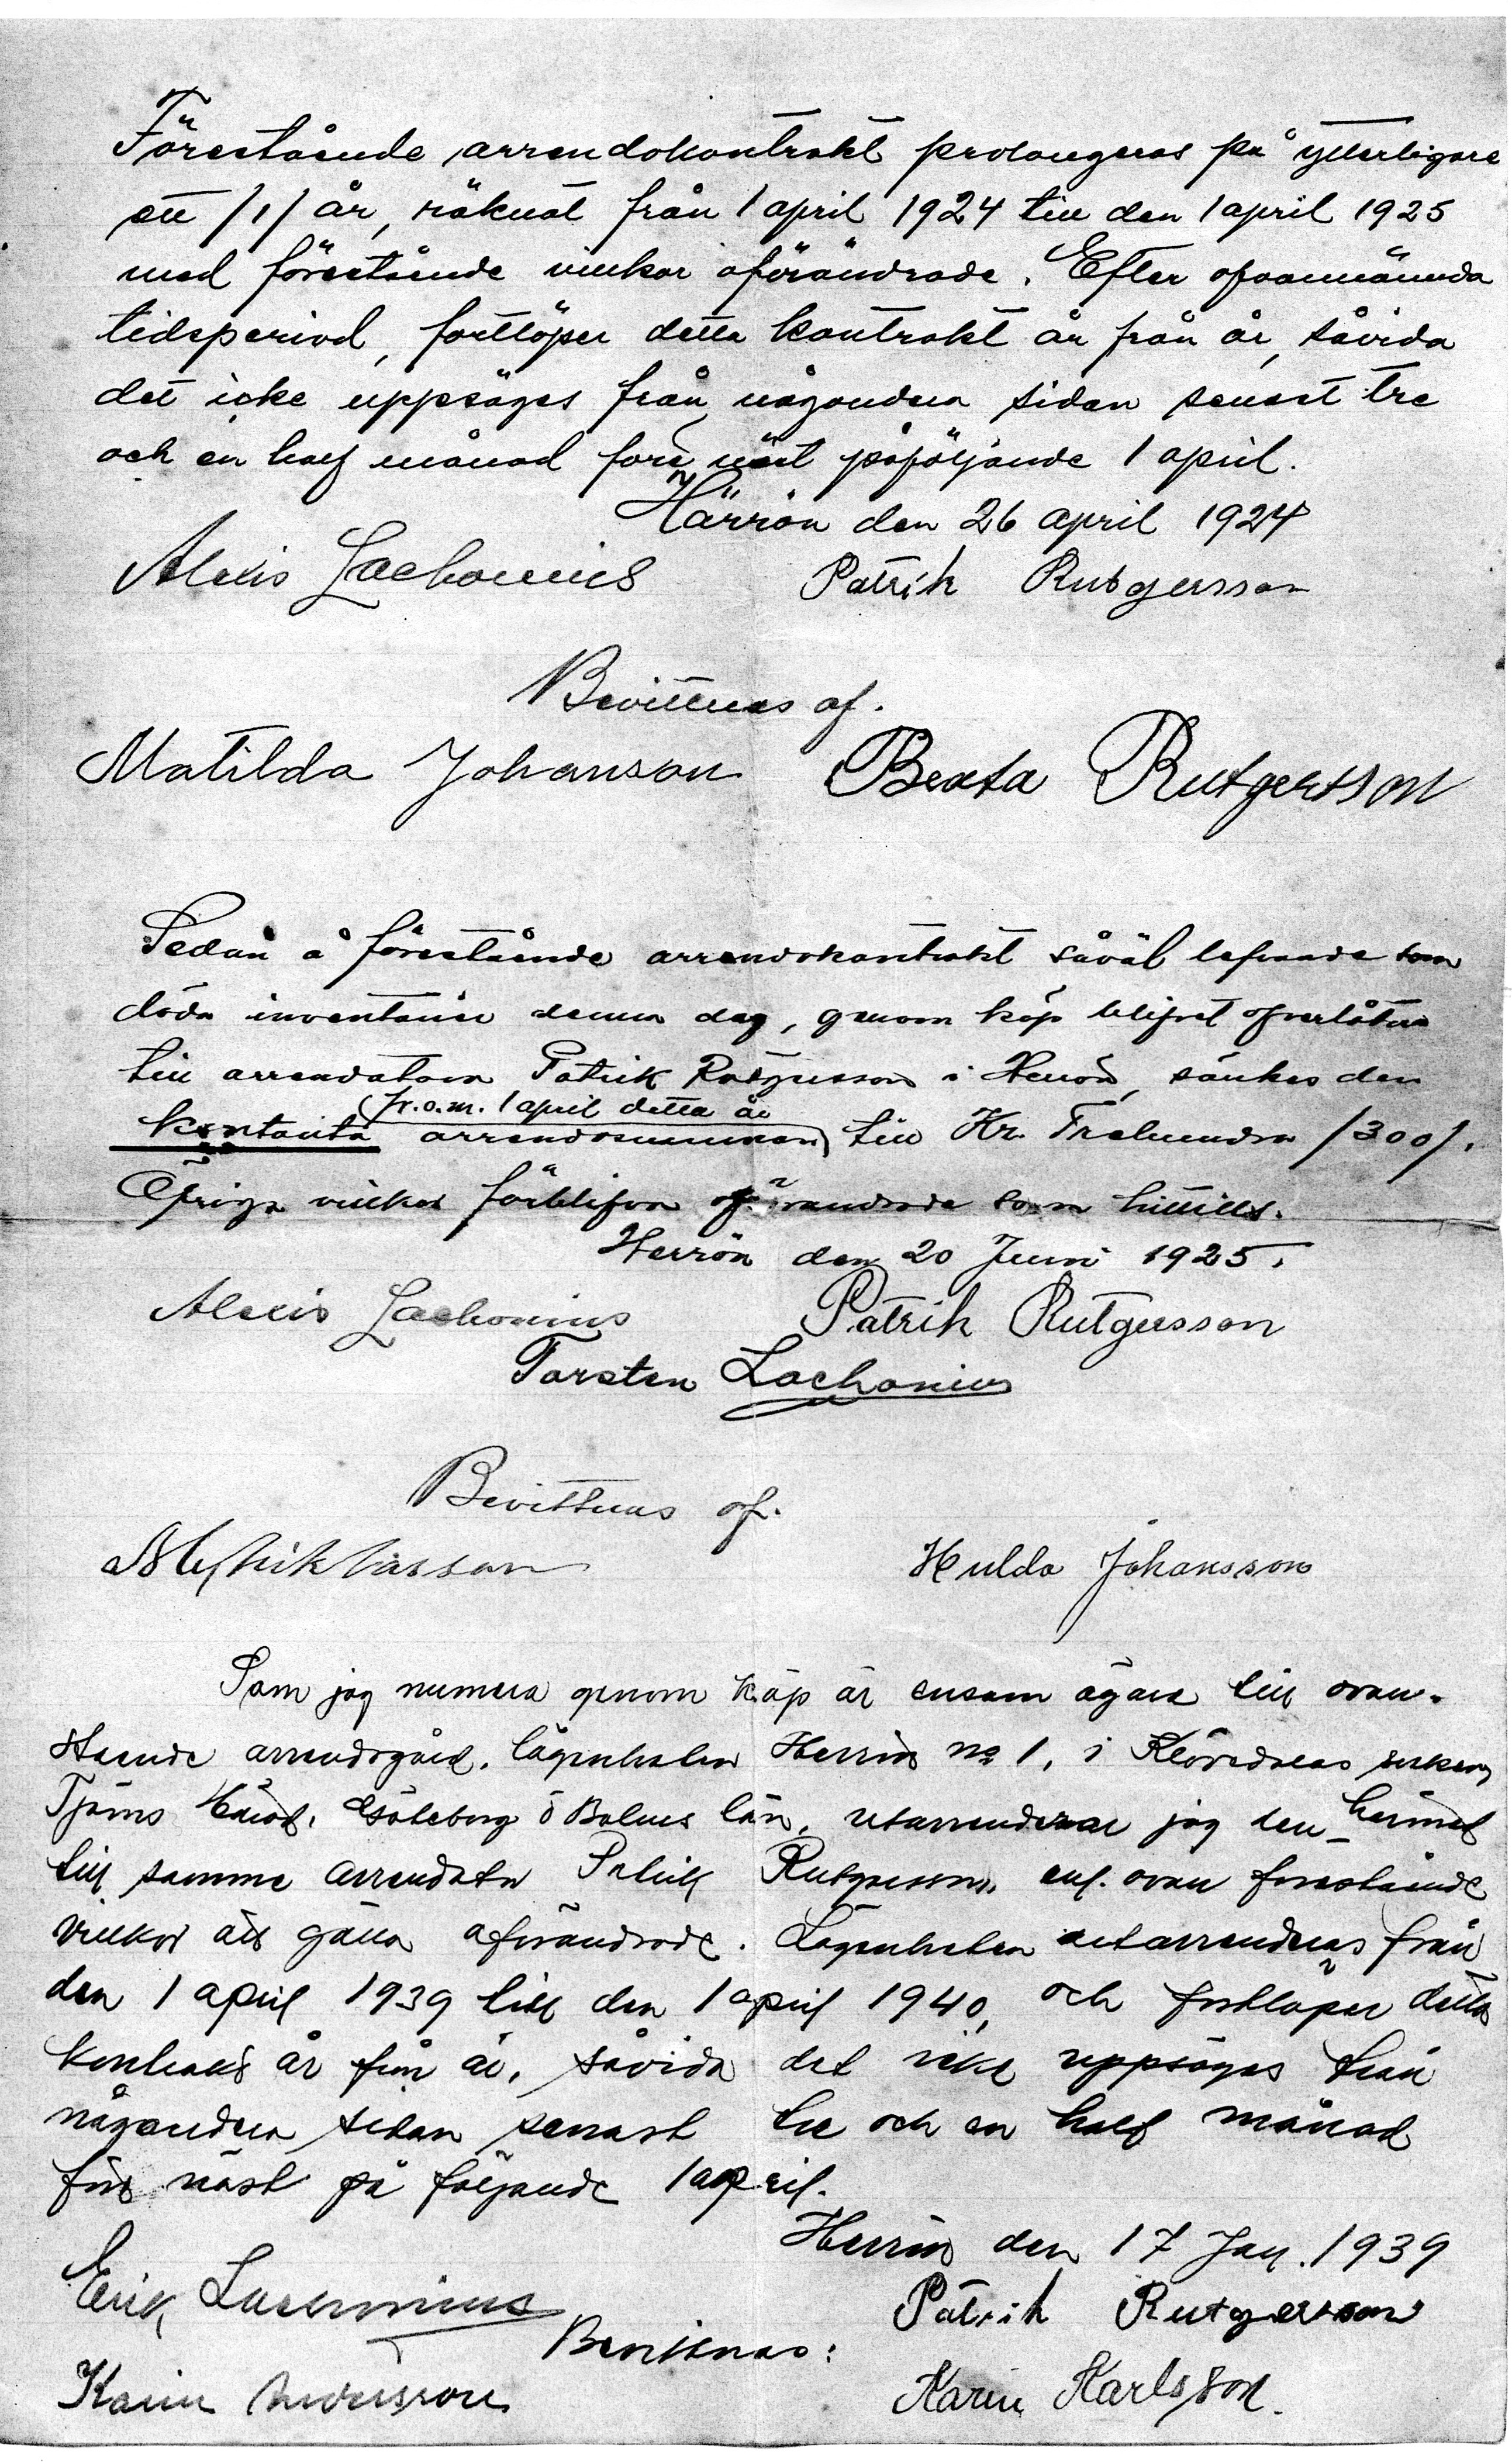 Förestående arrendokontrakt prolongeras på ytterligare
ett /1/ år, räknat från 1 april 1924 till den 1 april 1925
med förestående vilkor oförändrade. Efter ofvannämnda
tidsperiod, fortlöper detta kontrakt år från år, såvida
det icke uppsäges från någondera sidan senast tre
och en half månad före näst påföljande 1 april.
Härrön den 26 april 1924
Alexis Zachonius Patrik Rutgersson
Bevittnas af.
Matilda Johanson Beata Rutgertson
Sedan å förestående arrendokontrakt såväl lefvande som
döda inventarier denna dag, genom köp blifvit öfverlåtna
till arrendatorn Patrik Rutgersson i Herrön, sänkes den
fr.o.m. 1 april detta år
kontanta arrendosumman till Kr. Trehundra /300/.
Öfriga vilkor förblifva oförändrade som hittills.
Herrön den 20 Juni 1925.
Alexis Zachonius Patrik Rutgersson
Torsten Zachonius
Bevittnas af.
Hulda Johansson
Som jag numera genom köp är ensam ägare till ovan-
stående arrendogård, lägenheten Herrön No 1, i Klövedals socken,
Tjörns härad, Göteborg o Bohus län, utarrenderar jag den härmed
till samme arrendator Patrik Rutgersson, enl. ovan förestående
vilkor att gälla oförändrade. Lägenheten utarrenderas från
den 1 april 1939 till den 1 april 1940, och fortlöper detta
kontrakt år från år, såvida det icke uppsäges från
någondera sidan senast tre och en half månad
före näst på följande 1 april.
Herrön den 17 Jan. 1939
Erik Zachonius Patrik Rutgersson
Bevittnas:
Karin Andersson Karin Karlsson.